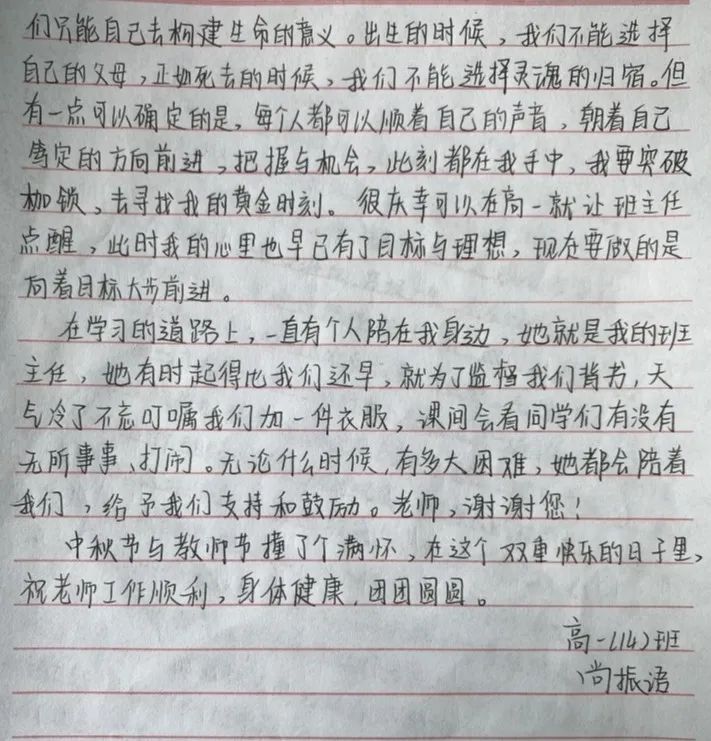 们只能自己去构建生命的意义。出生的时候，我们不能选择
自己的父母，正如死去的时候，我们不能选择灵魂的归宿。但
有一点可以确定的是，每个人都可以顺着自己的声音，朝着自己
笃定的方向前进，把握与机会，此刻都在我手中，我要突破
枷锁，去寻找我的黄金时刻。很庆幸可以在高一就让班主任
点醒，此时我的心里也早已有了目标与理想，现在要做的是
向着目标大步前进。
在学习的道路上，一直有个人陪在我身边，她就是我的班
主任，她有时起得比我们还早，就为了监督我们背书，天
气冷了不忘叮嘱我们加一件衣服，课间会看同学们有没有
无所事事、打闹。无论什么时候，有多大困难，她都会陪着
我们，给予我们支持和鼓励。老师，谢谢您！
中秋节与教师节撞了个满怀，在这个双重快乐的日子里，
祝老师工作顺利，身体健康，团团圆圆。
高一(14)班
尚振语